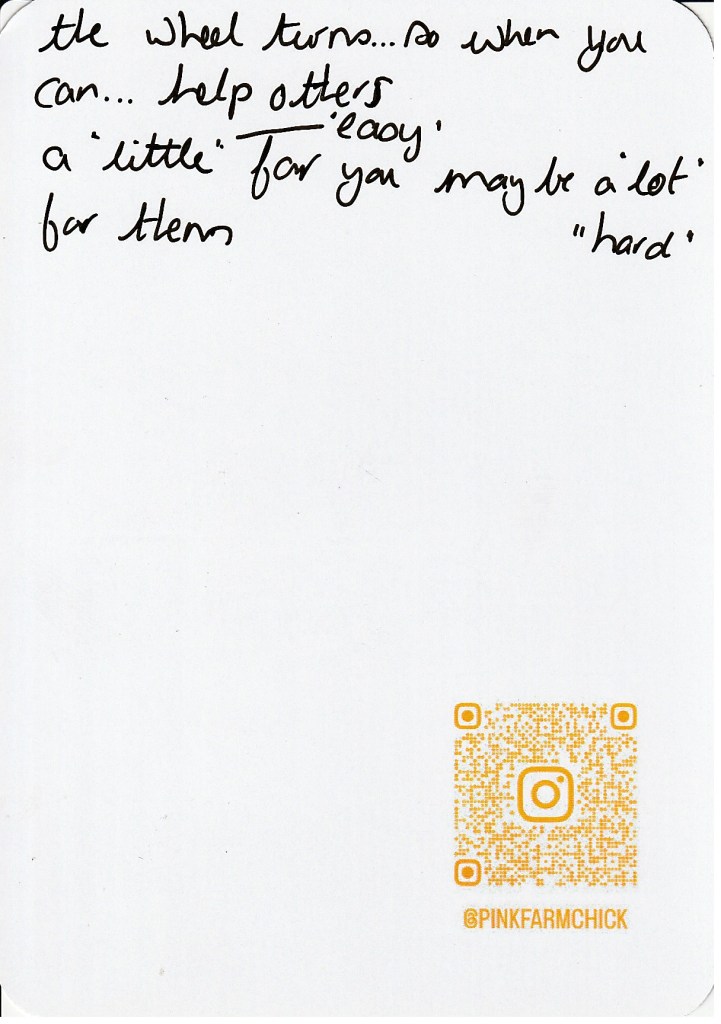 the wheel turns... so when you
can... help others
'easy'
a "little" for you may be a 'lot'
for them "hard'
@PINKFARMCHICK